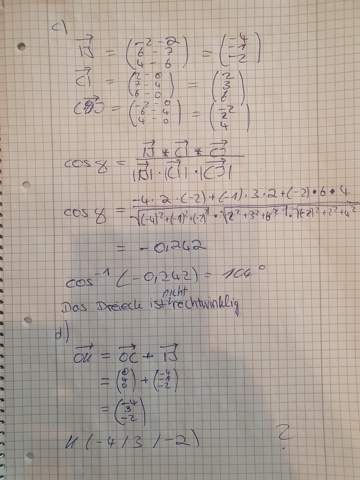 c)
IJ = (-2-2 6-7 4-6) = (-4 -1 -2)
CI = (2-0 7-4 6-0) = (2 3 6)
CJ = (-2-0 6-4 4-0) = (-2 2 4)
cos γ = IJ * CI * CJ / |IJ| · |CI| · |CJ|
cos γ = -4 · 2 · (-2) + (-1) · 3 · 2 + (-2) · 6 · 4 / √(-4)²+(-1)²+(-2)² · √2²+3²+6² · √(-2)²+2²+4²
= -0,242
cos⁻¹ (-0,242) = 104°
nicht
Das Dreieck ist rechtwinklig
d)
OK = OC + IJ
= (0 4 0) + (-4 -1 -2)
= (-4 3 -2)
K (-4 / 3 / -2) ?